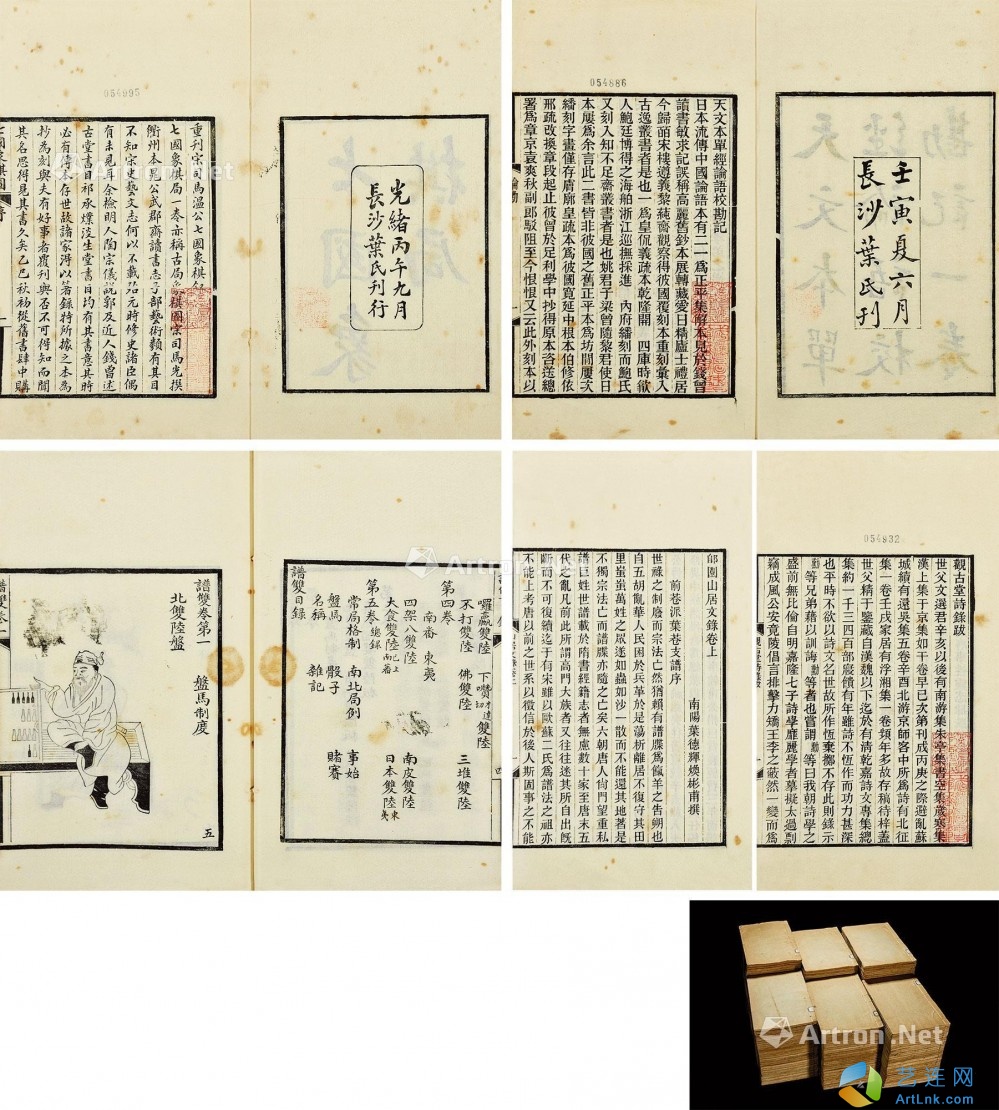 054995
光緒丙午九月
長沙葉氏刊行
重刊宋司馬溫公七國象棋
衢州本晁公武郡齋讀書志子部藝術類有其目
不知宋史藝文志何以不載殆元時修史諸臣偶
有未見耳余檢明人陶宗儀說郛及近人錢曾述
古堂書目祁承㸁淡生堂書目均有其書意其時
必有傳本存世故諸家得以著錄特所據之本為
抄為刻與夫有好事者覆刊與否不可得知而聞
其名思得見其書久矣乙巳秋初從舊書肆中購
054886
壬寅夏六月
長沙葉氏刊
天文本單經論語校勘記
日本流傳中國論語本有二一爲正平集解本見於錢曾
讀書敏求記誤稱高麗舊鈔本展轉藏愛日精廬士禮居
今歸皕宋樓遵義黎蒓齋觀察得彼國覆刻本重刻彙入
古逸叢書者是也一爲皇侃義疏本乾隆開 四庫時歙
人鮑廷博得之海舶浙江巡撫採進 內府繙刻而鮑氏
又刻入知不足齋叢書者是也姚君子梁曾隨黎君使日
本屢爲余言此二書皆非彼國之舊正平本爲坊間屢次
繙刻字畫僅存膚廓皇疏本爲彼國寬延中根本伯修依
邢疏改換章段起止彼曾於足利學中抄得原本咨送總
署爲章京袁爽秋副郎駁阻至今恨恨又云此外刻本以
囉贏雙陸 下囋雙陸 三堆雙陸
不打雙陸 佛雙陸
第四卷
南番 東夷
四架八雙陸 南皮雙陸
大食雙陸 日本雙陸
第五卷
常局格制 南北局例 事始
盤馬 骰子 賭賽
名稱 雜記
譜雙目錄
譜雙卷第一
盤馬制度
北雙陸盤
五
郋園山居文錄卷上
南陽葉德輝煥彬甫撰
前巷派葉巷支譜序
世祿之制廢而宗法亡然猶賴有譜牒爲餼羊之告朔也
自五胡亂華人民困於兵革於是蕩析離居不復守其田
里蚩蚩萬姓之眾遂如蟲如沙一散而不能還其地著是
不獨宗法亡而譜牒亦隨之亡矣六朝唐人尙門望重私
譜巨姓世譜載於隋書經籍志者無慮數十家至唐末五
代之亂凡前此所謂高門大族者又往往迷其所自出旣
斷而不可復續迄于有宋雖以歐蘇二氏爲譜法之祖亦
不能上考唐以前之世系以徵信於後人斯固事之不能
054932
觀古堂詩錄跋
世父文選君辛亥以後有南游集朱亭集書空集歲寒集
漢上集于京集如干卷早已次第刊成丙庚之際避亂蘇
城續有還吳集五卷辛酉北游京師客中所爲詩有北征
集一卷壬戌家居有浮湘集一卷頻年多故存稿待梓蓋
世父精于鑒藏自漢魏以下迄於有清乾嘉詩文專集總
集約一千三四百部寢饋有年雖詩不恆作而功力甚深
也平時不欲以詩文名世故所作恆棄擲不存此則錄示
等兄弟藉以訓誨 等者也嘗謂 等曰我朝詩學之
盛前無比倫自明嘉隆七子詩學靡麗學者摹擬太過剽
竊成風公安竟陵倡言排擊力矯王李之蔽然一變而爲
Artron.Net
艺连网
ArtLnk.com